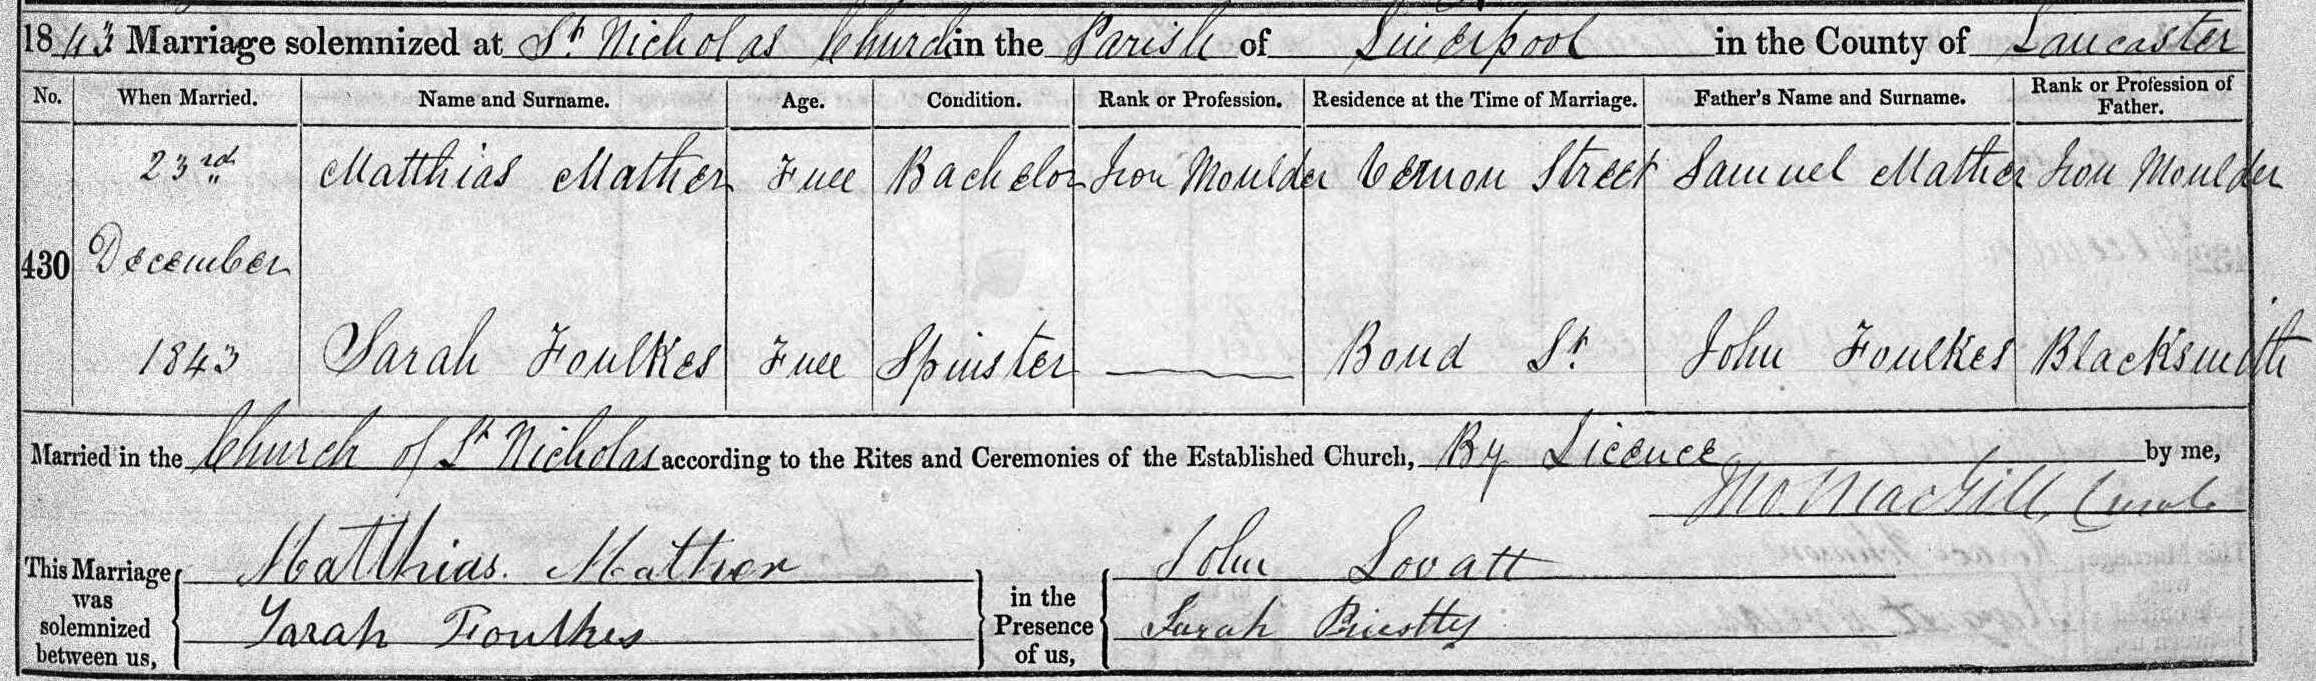 1843 Marriage solemnized at St Nicholas Church in the Parish of Liverpool in the County of Lancaster
No. When Married. Name and Surname. Age. Condition. Rank or Profession. Residence at the Time of Marriage. Father's Name and Surname. Rank or Profession of Father.
23rd Matthias Mather Full Bachelor Iron Moulder Vernon Street Samuel Mather Iron Moulder
430 December
1843 Sarah Foulkes Full Spinster Bond St John Foulkes Blacksmith
Married in the Church of St Nicholas according to the Rites and Ceremonies of the Established Church, By Licence by me,
MacGill, Curate
This Marriage was solemnized between us, Matthias Mather in the Presence of us, John Lovatt
Sarah Foulkes Sarah Priestly